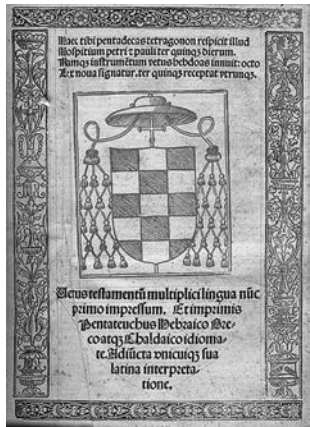 Haec tibi pentadecas tetragonon respicit illud
Hospitium petri et pauli ter quinqꝫ dierum.
Namqꝫ instrumētum vetus hebdoas innuit: octo
Lex noua signatur. ter quinqꝫ receptat vtrunqꝫ.
Uetus testamentū multiplici lingua nūc
primo impressum. Et imprimis
Pentateuchus Hebraico Gre-
coatqꝫ Chaldaico idioma-
te. Adiūcta vnicuiqꝫ sua
latina interpreta-
tione.